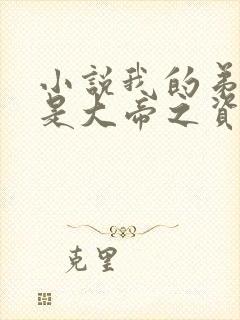 小說我的弟
是大帝之資
克里